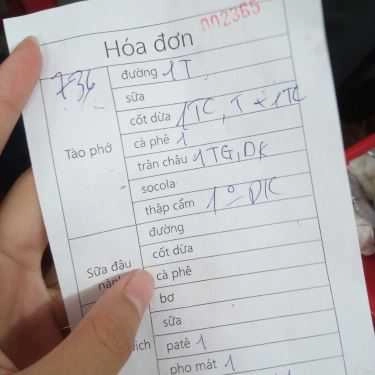 002365
Hóa đơn
736
Tào phớ
đường 1T
sữa
cốt dừa 1TC, T + 1TC
cà phê 1
trân châu 1TG, DK
socola
thập cẩm 1
Sữa đậu
đường
cốt dừa
cà phê
bơ
sữa
patê 1
pho mát 1